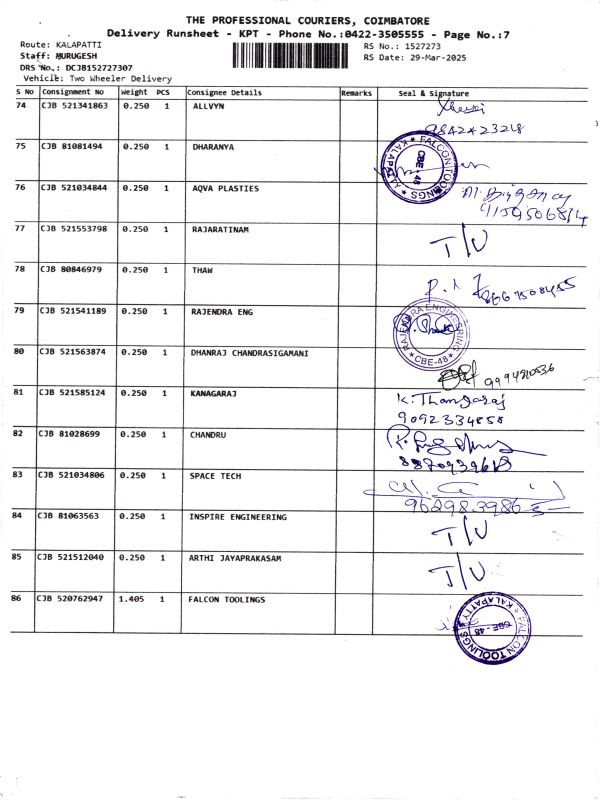 THE PROFESSIONAL COURIERS, COIMBATORE
Delivery Runsheet - KPT - Phone No.:0422-3505555 - Page No.:7
Route: KALAPATTI
RS No.: 1527273
Staff: MURUGESH
RS Date: 29-Mar-2025
DRS No.: DCJB152727307
Vehicle: Two Wheeler Delivery
S No Consignment No Weight PCS Consignee Details Remarks Seal & Signature
74 CJB 521341863 0.250 1 ALLVYN
75 CJB 81081494 0.250 1 DHARANYA
FALCON TOOLINGS KALAPATTY CBE-48
76 CJB 521034844 0.250 1 AQVA PLASTIES
77 CJB 521553798 0.250 1 RAJARATINAM T/U
78 CJB 80846979 0.250 1 THAW
8667508455
79 CJB 521541189 0.250 1 RAJENDRA ENG
RAJENDRA ENGINEERING CBE-48
80 CJB 521563874 0.250 1 DHANRAJ CHANDRASIGAMANI
81 CJB 521585124 0.250 1 KANAGARAJ K. Thangaraj
9092334858
82 CJB 81028699 0.250 1 CHANDRU
83 CJB 521034806 0.250 1 SPACE TECH
84 CJB 81063563 0.250 1 INSPIRE ENGINEERING T/U
85 CJB 521512040 0.250 1 ARTHI JAYAPRAKASAM T/U
86 CJB 520762947 1.405 1 FALCON TOOLINGS
FALCON TOOLINGS KALAPATTY CBE-48